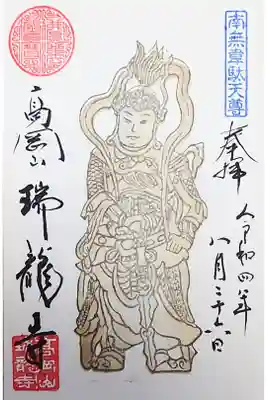 南無韋駄天尊
奉拝
令和四年
八月二十六日
高岡山
瑞龍寺
高岡山
瑞龍寺